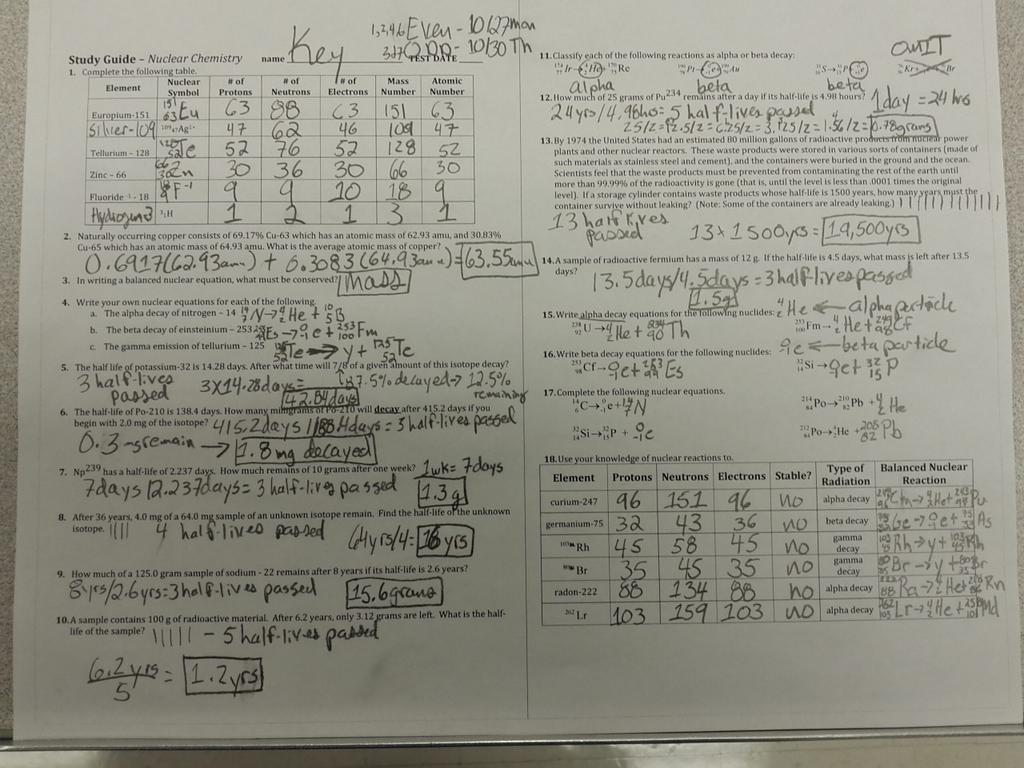 Key
1,2,4,6 Even - 10/27 mon
3,5,7 ODD - 10/30 Th
Study Guide – Nuclear Chemistry name TEST DATE
1. Complete the following table.
Element Nuclear Symbol # of Protons # of Neutrons # of Electrons Mass Number Atomic Number
Europium-151 151 63 Eu 63 88 63 151 63
Silver-109 109 47 Ag 1+ 47 62 46 109 47
Tellurium – 128 128 52 Te 52 76 52 128 52
Zinc – 66 66 30 Zn 30 36 30 66 30
Fluoride -1 - 18 18 9 F -1 9 9 10 18 9
Hydrogen-3 3 1 H 1 2 1 3 1
2. Naturally occurring copper consists of 69.17% Cu-63 which has an atomic mass of 62.93 amu, and 30.83%
Cu-65 which has an atomic mass of 64.93 amu. What is the average atomic mass of copper?
0.6917(62.93amu) + 0.3083(64.93amu) = 63.55amu
3. In writing a balanced nuclear equation, what must be conserved? Mass
4. Write your own nuclear equations for each of the following.
a. The alpha decay of nitrogen – 14 14 7 N → 4 2 He + 10 5 B
b. The beta decay of einsteinium – 253 253 99 Es → 0 -1 e + 253 100 Fm
c. The gamma emission of tellurium – 125 125 52 Te → γ + 125 52 Te
5. The half life of potassium-32 is 14.28 days. After what time will 7/8 of a given amount of this isotope decay?
3 half-lives passed 3 x 14.28 days = 42.84 days 87.5% decayed → 12.5% remaining
6. The half-life of Po-210 is 138.4 days. How many milligrams of Po-210 will decay after 415.2 days if you
begin with 2.0 mg of the isotope? 415.2 days / 138.4 days = 3 half-lives passed
0.3 remain → 1.8 mg decayed
7. Np239 has a half-life of 2.237 days. How much remains of 10 grams after one week? 1wk = 7days
7days / 2.237days = 3 half-lives passed 1.3g
8. After 36 years, 4.0 mg of a 64.0 mg sample of an unknown isotope remain. Find the half-life of the unknown
isotope. |||| 4 half-lives passed 64yrs/4 = 16 yrs
9. How much of a 125.0 gram sample of sodium – 22 remains after 8 years if its half-life is 2.6 years?
8yrs/2.6yrs = 3 half-lives passed 15.6 grams
10. A sample contains 100 g of radioactive material. After 6.2 years, only 3.12 grams are left. What is the half-
life of the sample? ||||| - 5 half-lives passed
6.2 yrs / 5 = 1.2 yrs
11. Classify each of the following reactions as alpha or beta decay: OMIT
Ir → 4 2 He + Re Pt → 0 -1 e + Au S → P + 0 -1 e Kr + → Br
alpha beta beta
12. How much of 25 grams of Pu234 remains after a day if its half-life is 4.98 hours? 1 day = 24 hrs
24yrs/4.98hrs = 5 half-lives passed
25/2 = 12.5/2 = 6.25/2 = 3.125/2 = 1.56/2 = 0.78 grams
13. By 1974 the United States had an estimated 80 million gallons of radioactive products from nuclear power
plants and other nuclear reactors. These waste products were stored in various sorts of containers (made of
such materials as stainless steel and cement), and the containers were buried in the ground and the ocean.
Scientists feel that the waste products must be prevented from contaminating the rest of the earth until
more than 99.99% of the radioactivity is gone (that is, until the level is less than .0001 times the original
level). If a storage cylinder contains waste products whose half-life is 1500 years, how many years must the
container survive without leaking? (Note: Some of the containers are already leaking.) |||||||||||||
13 half lives passed 13 x 1500yrs = 19,500yrs
14. A sample of radioactive fermium has a mass of 12 g. If the half-life is 4.5 days, what mass is left after 13.5
days? 13.5days/4.5days = 3 half-lives passed
1.5g
15. Write alpha decay equations for the following nuclides: 4 2 He ← alpha particle
238 92 U → 4 2 He + 234 90 Th 253 100 Fm → 4 2 He + 249 98 Cf
16. Write beta decay equations for the following nuclides: 0 -1 e ← beta particle
253 98 Cf → 0 -1 e + 253 99 Es 32 14 Si → 0 -1 e + 32 15 P
17. Complete the following nuclear equations.
14 6 C → 0 -1 e + 14 7 N 214 84 Po → 210 82 Pb + 4 2 He
32 14 Si → 32 15 P + 0 -1 e 212 84 Po → 4 2 He + 208 82 Pb
18. Use your knowledge of nuclear reactions to.
Element Protons Neutrons Electrons Stable? Type of Radiation Balanced Nuclear Reaction
curium-247 96 151 96 no alpha decay 247 96 Cm → 4 2 He + 243 94 Pu
germanium-75 32 43 36 no beta decay 75 32 Ge → 0 -1 e + 75 33 As
103m Rh 45 58 45 no gamma decay 103 45 Rh → γ + 103 45 Rh
80m Br 35 45 35 no gamma decay 80 35 Br → γ + 80 35 Br
radon-222 88 134 88 no alpha decay 222 88 Ra → 4 2 He + 218 86 Rn
262 Lr 103 159 103 no alpha decay 262 103 Lr → 4 2 He + 258 101 Md